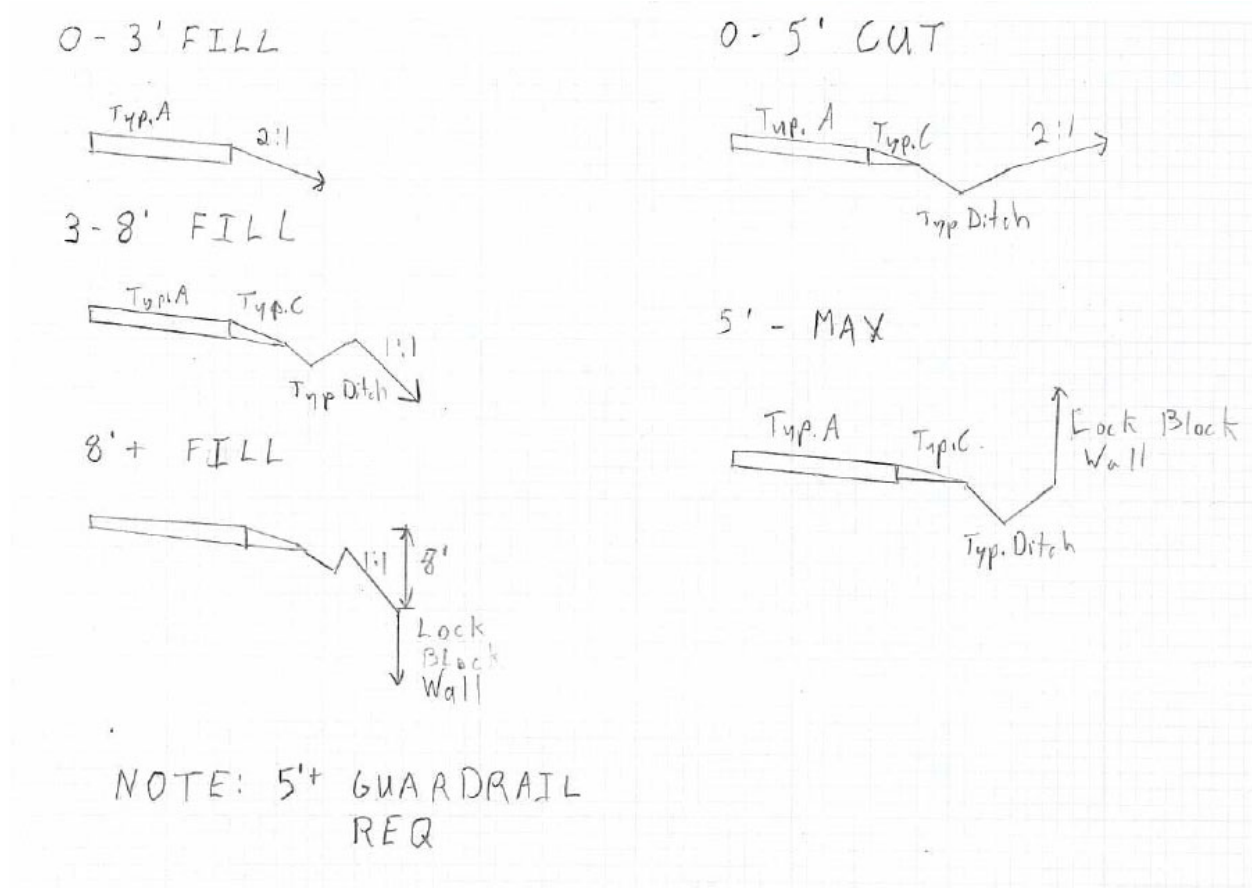 0 - 3' FILL
Typ. A
2:1
3 - 8' FILL
Typ. A
Typ. C
1:1
Typ Ditch
8' + FILL
1:1
8'
Lock
Block
Wall
NOTE: 5'+ GUARDRAIL
REQ
0 - 5' CUT
Typ. A
Typ. C
2:1
Typ Ditch
5' - MAX
Typ. A
Typ. C
Lock Block
Wall
Typ. Ditch